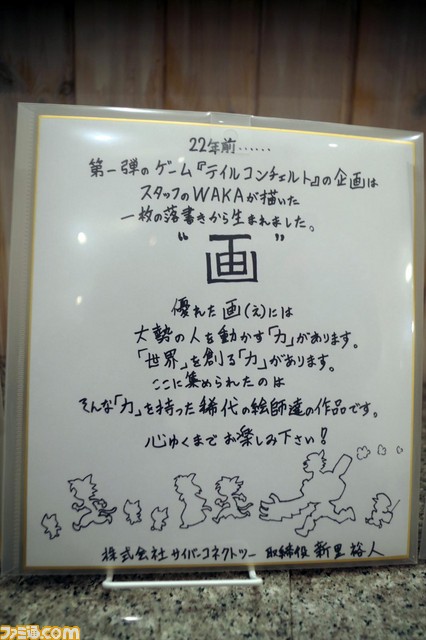 22年前……
第一弾のゲーム『テイルコンチェルト』の企画は
スタッフのWAKAが描いた
一枚の落書きから生まれました。
"画"
優れた画(え)には
大勢の人を動かす「力」があります。
「世界」を創る「力」があります。
ここに集められたのは
そんな「力」を持った稀代の絵師達の作品です。
心ゆくまでお楽しみ下さい!
株式会社サイバーコネクトツー 取締役 新里裕人
ファミ通.com